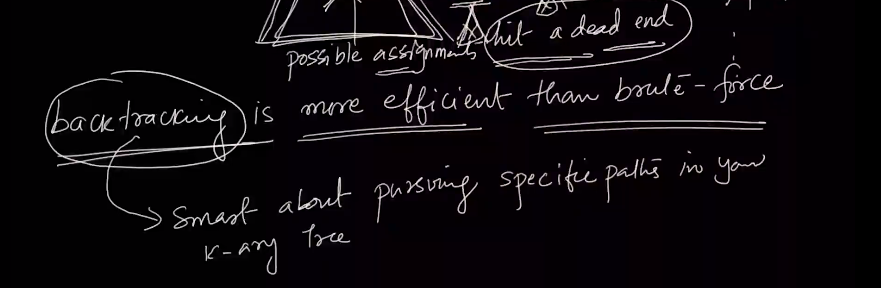 hit a dead end
possible assignments
backtracking is more efficient than brute-force
smart about pursuing specific paths in your
k-ary tree